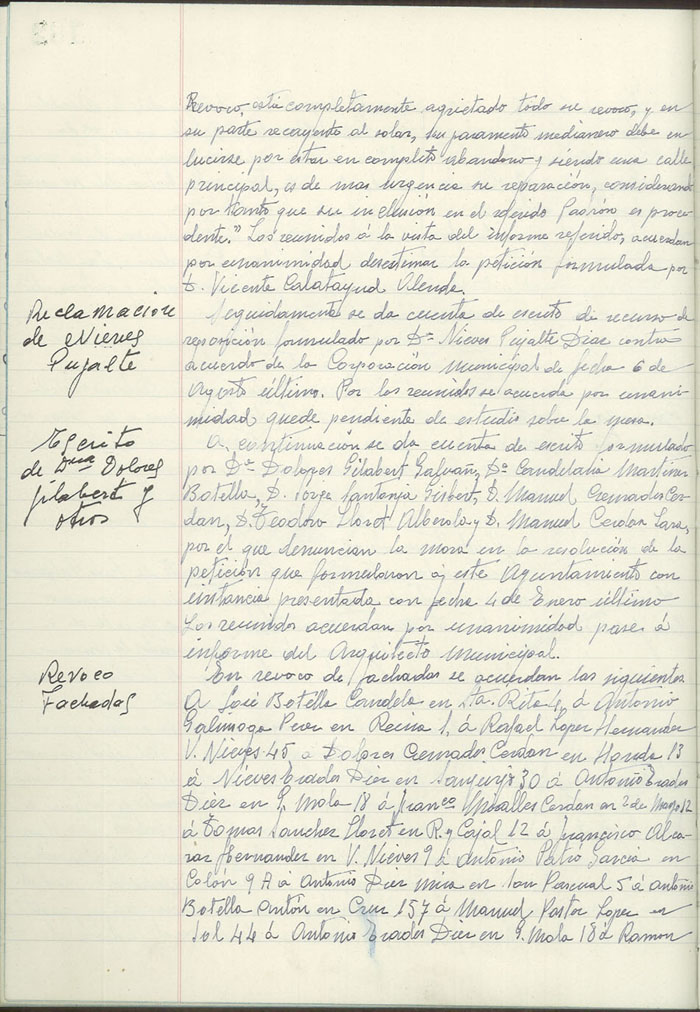 Revoco, está completamente agrietado todo su revoco, y en
su parte recayente al solar, su paramento medianero debe en
lucirse por estar en completo abandono y siendo una calle
principal, es de mas urgencia su reparación, considerando
por tanto que su inclusión en el referido Padrón es proce
dente." Los reunidos á la vista del informe referido, acuerdan
por unanimidad desestimar la petición formulada por
D. Vicente Calatayud Alenda.
Reclamación
de Nieves
Pujalte
Seguidamente se da cuenta de escrito de recurso de
reposición formulado por Dª Nieves Pujalte Diez contra
acuerdo de la Corporación Municipal de fecha 6 de
Agosto último. Por los reunidos se acuerda por unani
midad quede pendiente de estudio sobre la mesa.
Escrito
de Dña Dolores
Gilabert y
otros
A continuacion se da cuenta de escrito formulado
por Dª Dolores Gilabert Galvañ, Dª Candelaria Martinez
Botella, D. Jorge Santonja Gisbert, D. Manuel Cremades Cer
dan, D. Teodoro Lloret Alberola y D. Manuel Cerdan
por el que denuncian la mora en la resolución de la
petición que formularon a este Ayuntamiento con
instancia presentada con fecha 4 de Enero último
Los reunidos acuerdan por unanimidad pase á
informe del Arquitecto Municipal.
Revoco
Fachadas
En revoco de fachadas se acuerdan las siguientes
A José Botella Candela en Sta. Rita 4, á Antonio
en Reina 1, á Rafael Lopez Hernandez
V. Nieves 45, a Dolores Cremades Cerdan en 13
á Nieves Diez en Sanjurjo 30 á Antonio
Diez en G. Mola 18 á Franco Miralles Cerdan en 2 de Mayo 12
á Tomas Sanchez Lloret en R. y Cajal 12 á Francisco Alca
raz Hernandez en V. Nieves 9 á Antonio Garcia en
Colón 9 A á Antonio Diez Mira en San Pascual 5 á Antonio
Botella Antón en Cruz 157 á Manuel Pastor Lopez en
Sol 44 á Antonio Diez en G. Mola 18 á Ramon